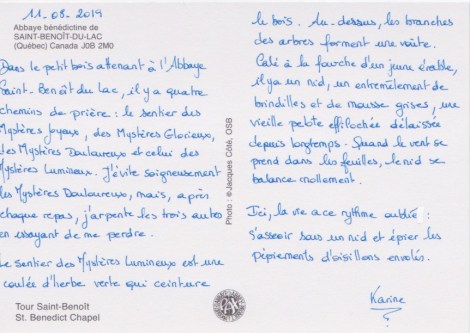 11.08.2019
Abbaye bénédictine de
SAINT-BENOÎT-DU-LAC
(Québec) Canada J0B 2M0
Dans le petit bois attenant à l'Abbaye
Saint-Benoît du Lac, il y a quatre
chemins de prière : le sentier des
Mystères Joyeux, des Mystères Glorieux,
des Mystères Douloureux et celui des
Mystères Lumineux. J'évite soigneusement
les Mystères Douloureux, mais, après
chaque repas, j'arpente les trois autres
en essayant de me perdre.
Le sentier des Mystères Lumineux est une
coulée d'herbe verte qui ceinture
Tour Saint-Benoît
St. Benedict Chapel
Photo : ©Jacques Côté, OSB
le bois. Au-dessus, les branches
des arbres forment une voûte.
Calé à la fourche d'un jeune érable,
il y a un nid, un entremêlement de
brindilles et de mousse grises, une
vieille pelote effilochée délaissée
depuis longtemps. Quand le vent se
prend dans les feuilles, le nid se
balance mollement.
Ici, la vie a ce rythme oublié :
s'asseoir sous un nid et épier les
pépiements d'oisillons envolés.
Karine